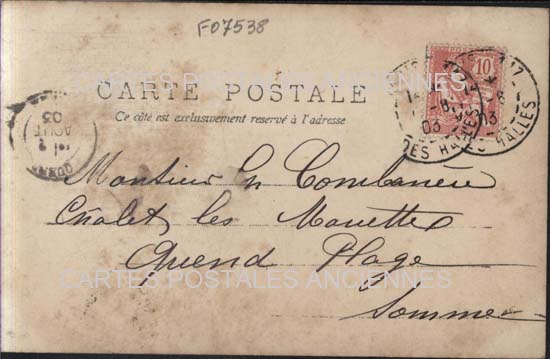 F07538
CARTES POSTALES ANCIENNES
CARTE POSTALE
Ce côté est exclusivement reservé à l'adresse
10
03
DES HALLES
03
DES HALLES
AOUT
03
Monsieur
Châlet les Mouettes
Quend Plage
CARTES POSTALES ANCIENNES
Somme